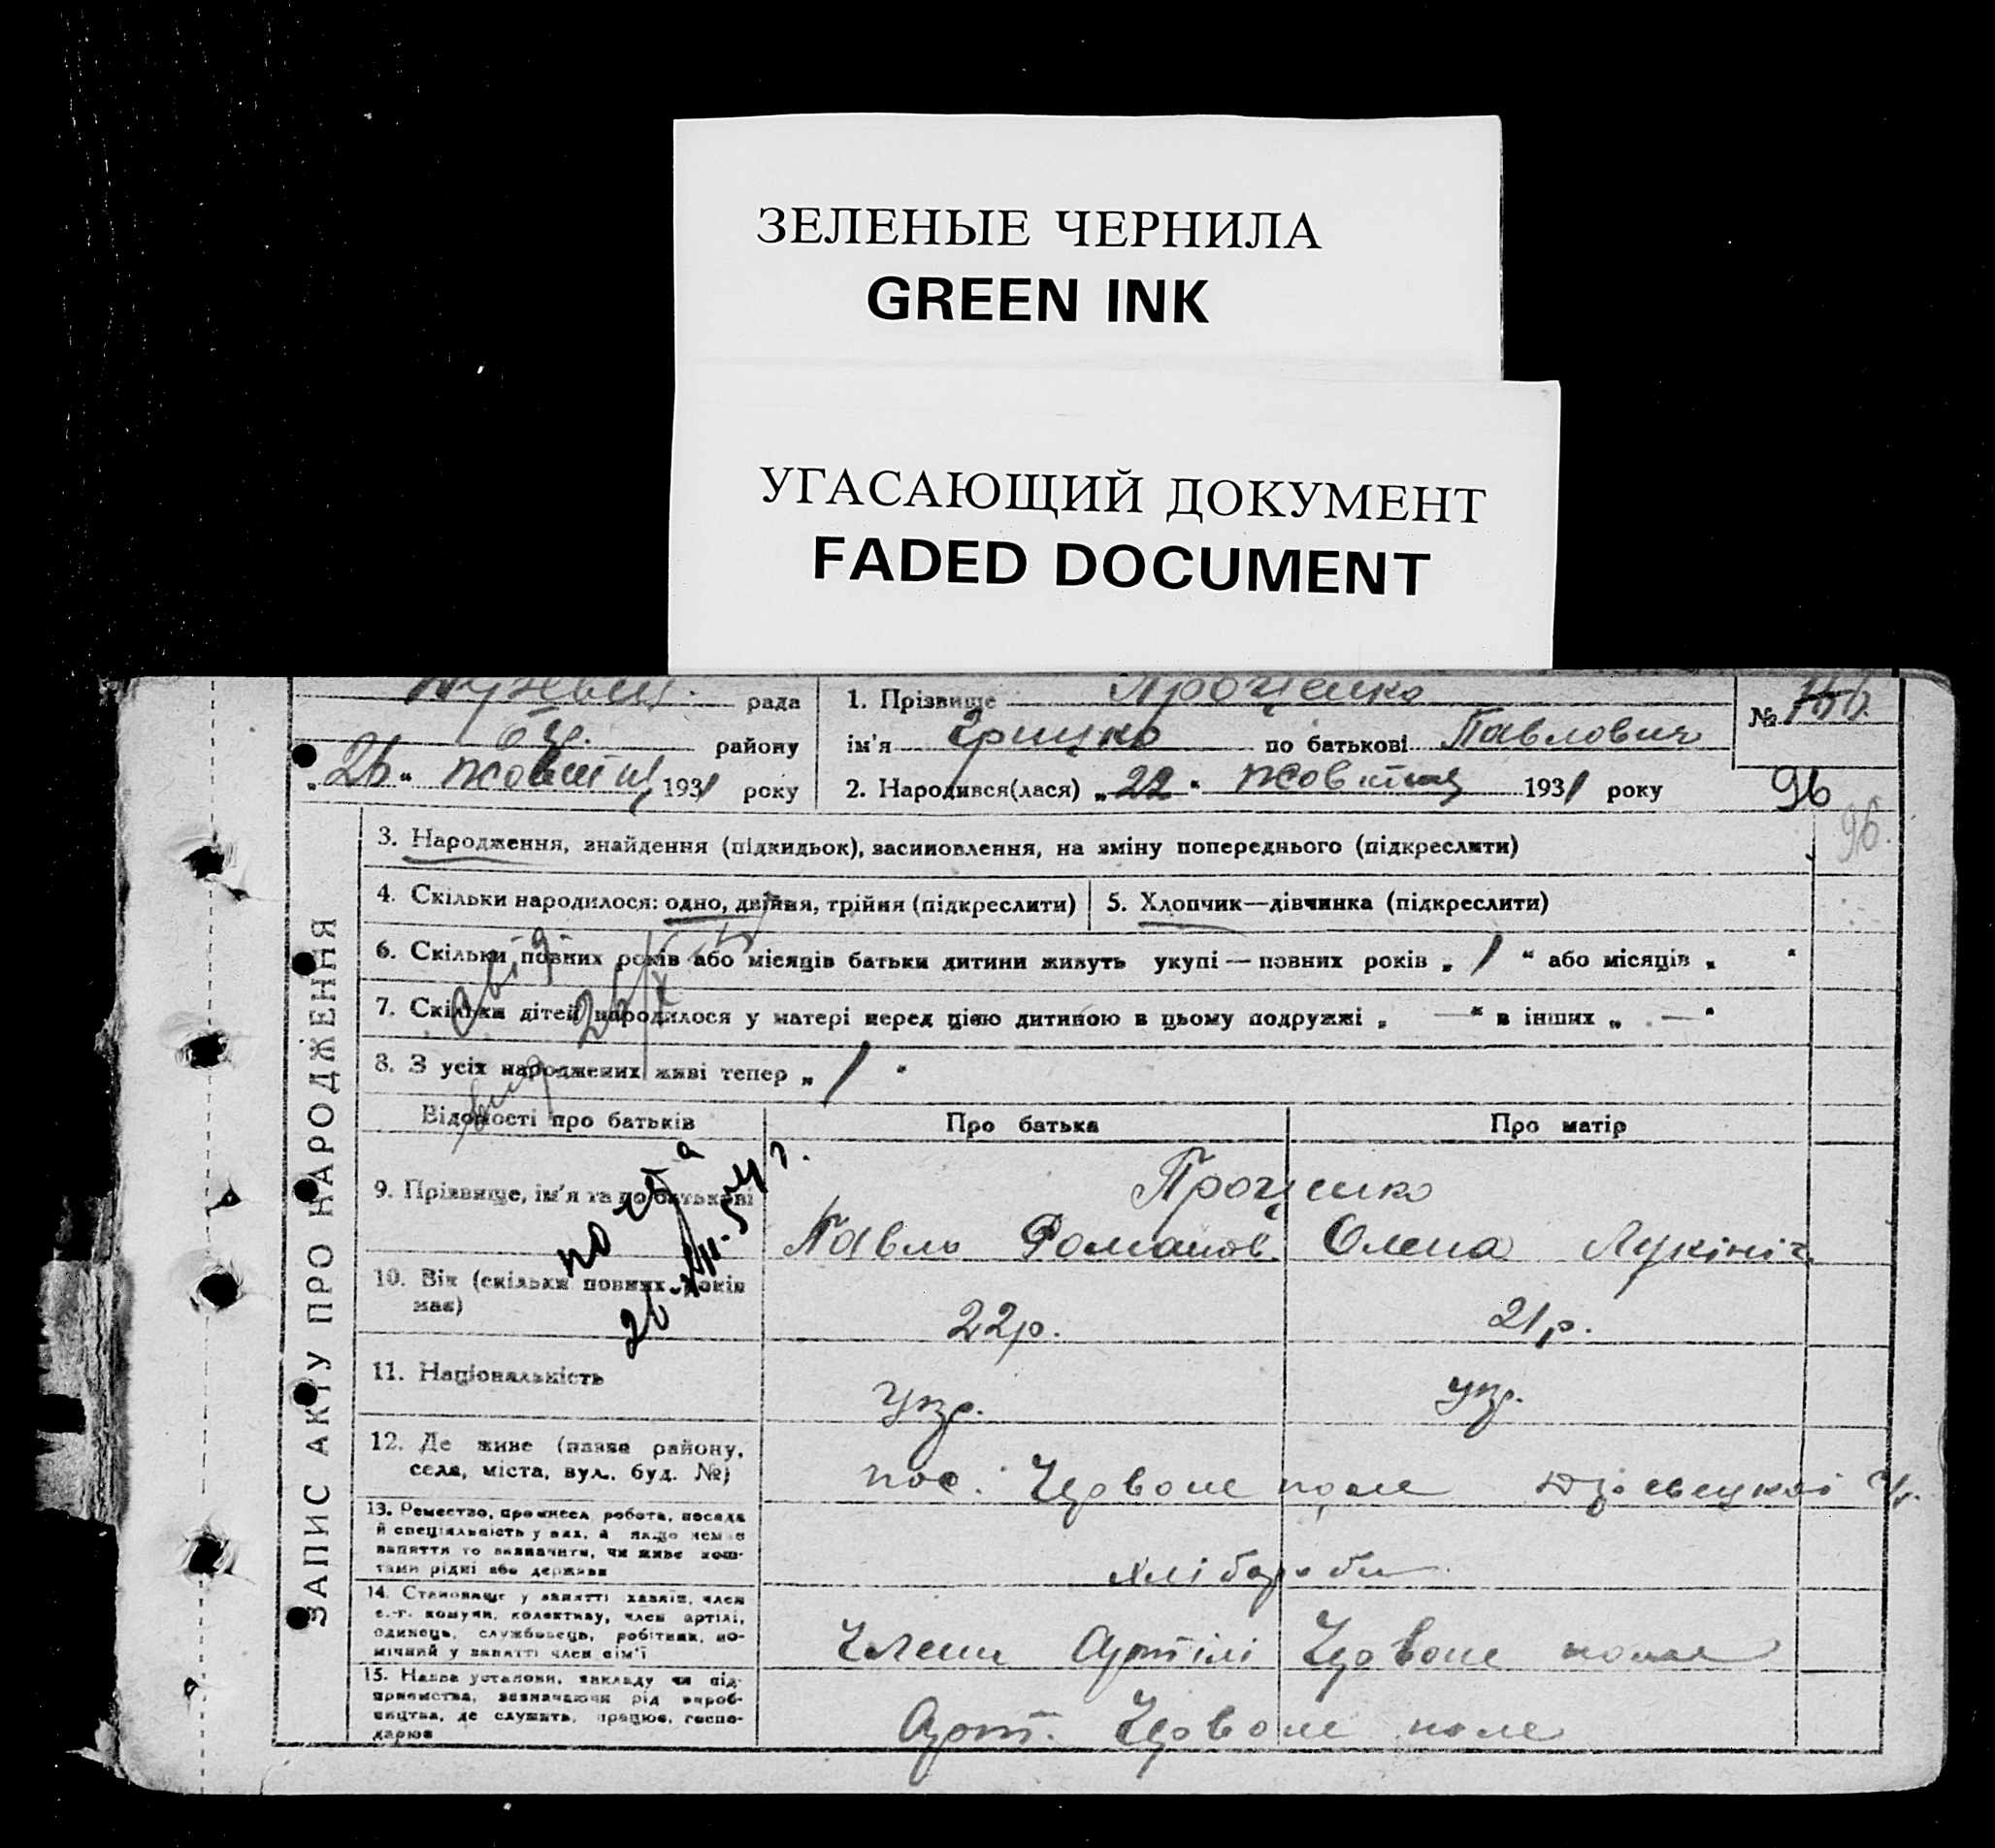 ЗЕЛЕНЫЕ ЧЕРНИЛА
GREEN INK
УГАСАЮЩИЙ ДОКУМЕНТ
FADED DOCUMENT
рада
району
„26“ жовтня 1931 року
1. Прізвище Проценко
ім'я Грицко по батькові Павлович
2. Народився(лася) „22“ жовтня 1931 року
№
96
96.
ЗАПИС АКТУ ПРО НАРОДЖЕННЯ
3. Народження, знайдення (підкидьок), засиновлення, на зміну попереднього (підкреслити)
4. Скільки народилося: одно, двійня, трійня (підкреслити)
5. Хлопчик—дівчинка (підкреслити)
6. Скільки повних років або місяців батьки дитини живуть укупі — повних років „ 1 “ або місяців „ “
7. Скільки дітей народилося у матері перед цією дитиною в цьому подружжі „ — “ в інших „ — “
8. З усіх народжених живі тепер „ 1 “
Відомості про батьків
Про батька
Про матір
9. Прізвище, ім'я та по батькові
Проценко
Павло Романов.
Олена Лукініч.
10. Вік (скільки повних років
має)
22р.
21р.
11. Національність
укр.
укр.
12. Де живе (назва району,
села, міста, вул., буд. №)
пос. Червоне поле
13. Ремество, промисел, робота, посада
й спеціяльність у них, а якщо немає
заняття то визначити, чи живе кош-
тами рідні або держави
хлібороби
14. Становище у занятті: хазяїн, член
с.-г. комуни, колективу, член артілі,
одинець, службовець, робітник, по-
мічний у занятті член сім'ї
Члени Артілі Червоне поле
15. Назва установи, закладу чи під-
приємства, зазначаючи рід вироб-
ництва, де служить, працює, госпо-
дарює
Арт. Червоне поле